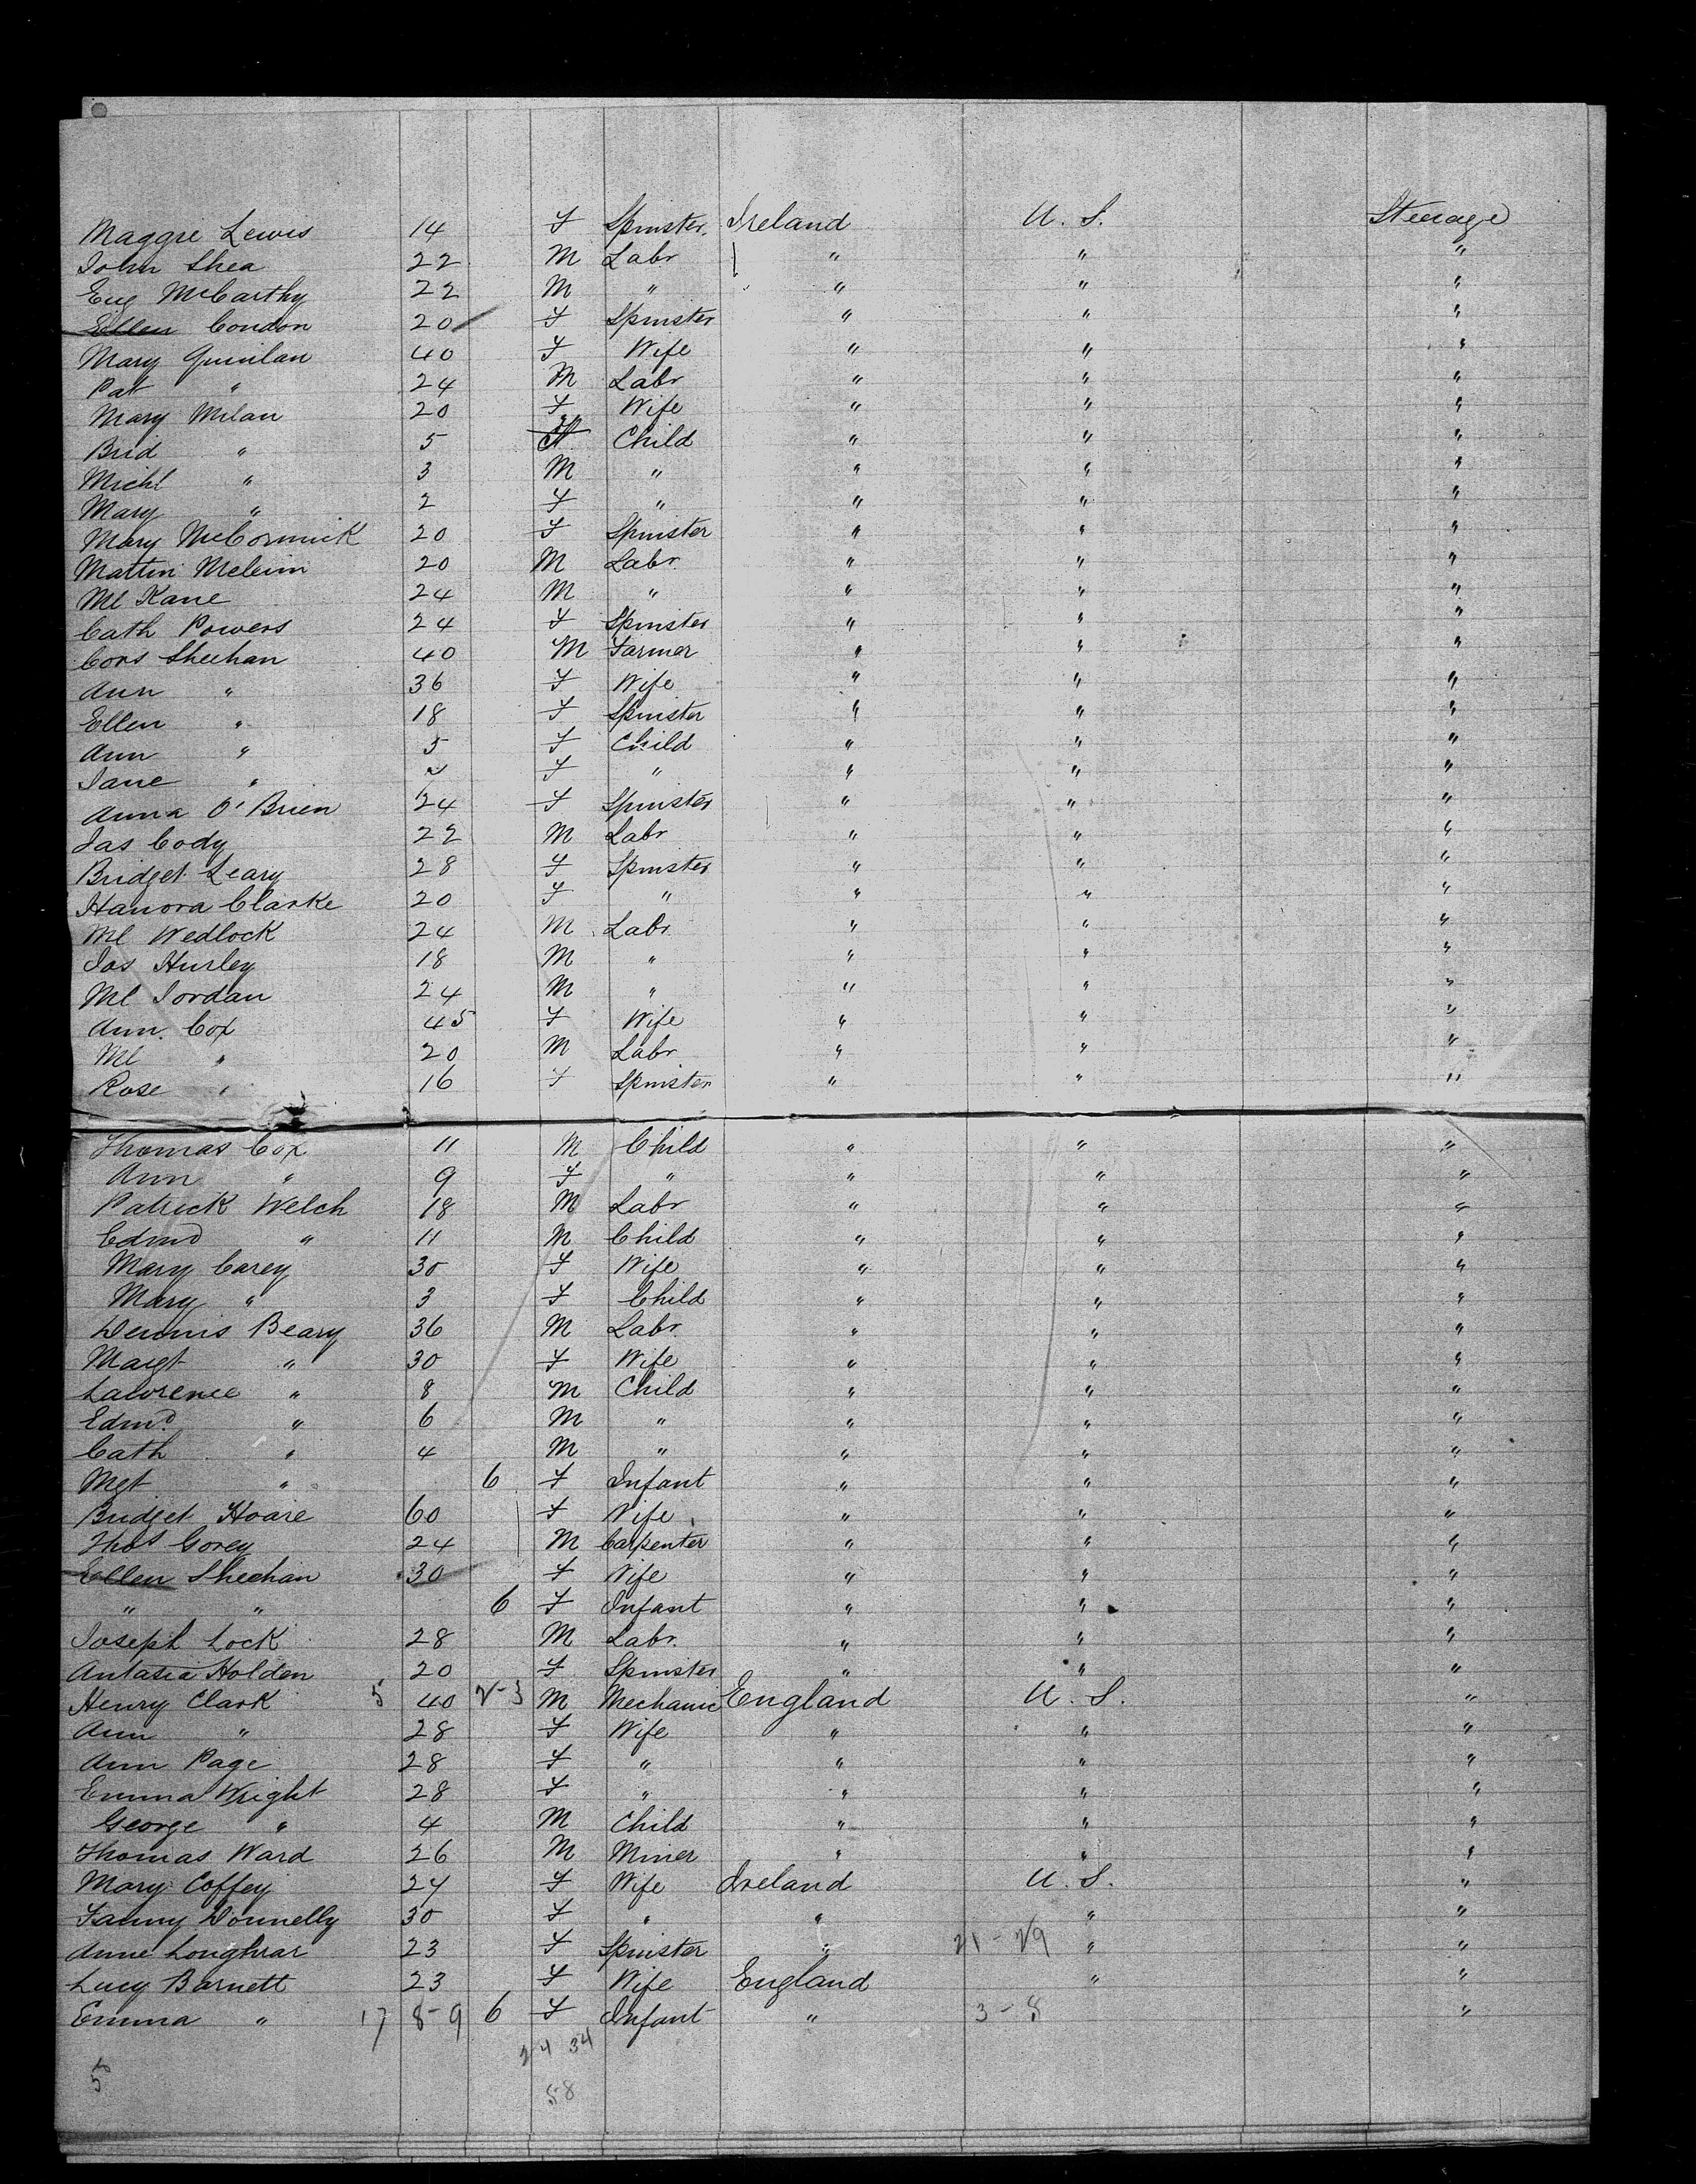 Maggie Lewis 14 F Spinster. Ireland U. S. Steerage
John Shea 22 M Labr " " "
Eug McCarthy 22 M " " " "
Ellen Condon 20 F Spinster " " "
Mary Quinlan 40 F Wife " " "
Pat " 24 M Labr " " "
Mary Milan 20 F Wife " " "
Brid " 5 F Child " " "
Michl " 3 M " " " "
Mary " 2 F " " " "
Mary McCormick 20 F Spinster " " "
Martin 20 M Labr. " " "
Ml Kane 24 M " " " "
Cath Powers 24 F Spinster " " "
Cors Sheehan 40 M Farmer " " "
Ann " 36 F Wife " " "
Ellen " 18 F Spinster " " "
Ann " 5 F Child " " "
Jane " F " " " "
Anna O'Brien 24 F Spinster " " "
Jas Cody 22 M Labr " " "
Bridget Leary 28 F Spinster " " "
Hanora Clarke 20 F " " " "
Ml Wedlock 24 M Labr " " "
Jos Hurley 18 M " " " "
Ml Jordan 24 M " " " "
Ann Cox 45 F Wife " " "
Ml " 20 M Labr " " "
Rose " 16 F Spinster " " "
Thomas Cox 11 M Child " " "
Ann " 9 F " " " "
Patrick Welch 18 M Labr " " "
Edmd " 11 M Child " " "
Mary Carey 30 F Wife " " "
Mary " 3 F Child " " "
Dennis Beary 36 M Labr. " " "
Margt " 30 F Wife " " "
Lawrence " 8 M Child " " "
Edmd " 6 M " " " "
Cath " 4 M " " " "
Mgt " 6 F Infant " " "
Bridget Hoare 60 F Wife " " "
Thos Gorey 24 M Carpenter " " "
Ellen Sheehan 30 F Wife " " "
" " 6 F Infant " " "
Joseph Lock 28 M Labr. " " "
Antasia Holden 20 F Spinster " " "
Henry Clark 5 40 2-3 M Mechanic England U. S. "
Ann " 28 F Wife " " "
Ann Page 28 F " " " "
Emma Wright 28 F " " " "
George " 4 M Child " " "
Thomas Ward 26 M Miner " " "
Mary Coffey 24 F Wife Ireland U. S. "
Fanny Donnelly 30 F " " " "
Anne Loughrar 23 F Spinster " 21-29 " "
Lucy Barnett 23 F Wife England " "
Emma " 17 8-9 6 F Infant " 3-8 "
24 34
58